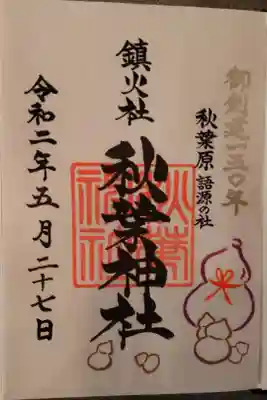 御創建一五〇年
秋葉原語源の社
鎮火社
秋葉神社
令和二年五月二十七日
秋葉神社